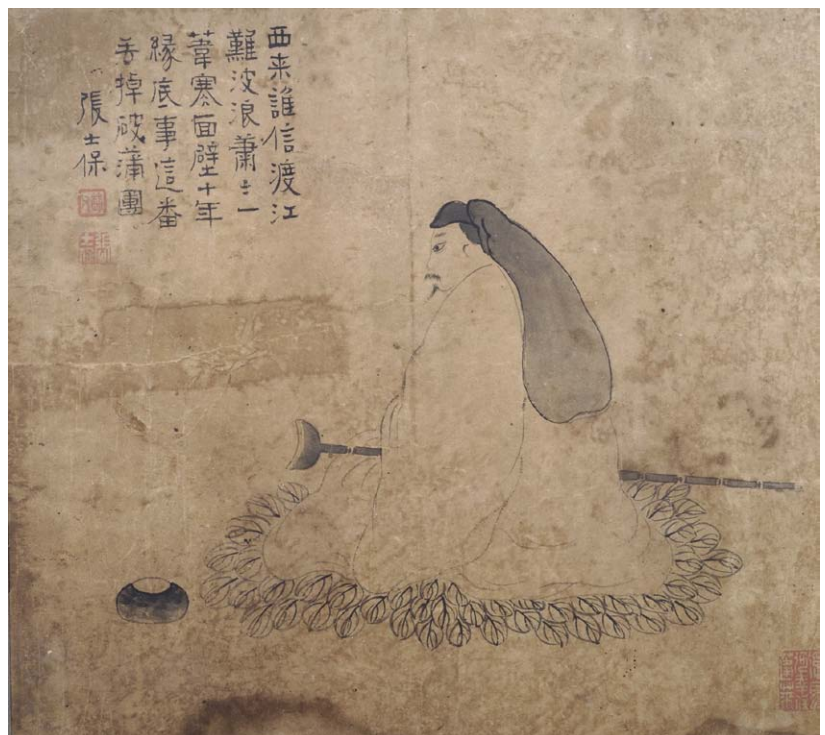 西来誰信渡江
難波浪蕭〻一
葦寒面壁十年
緣底事這番
丟掉破蒲團
張士保